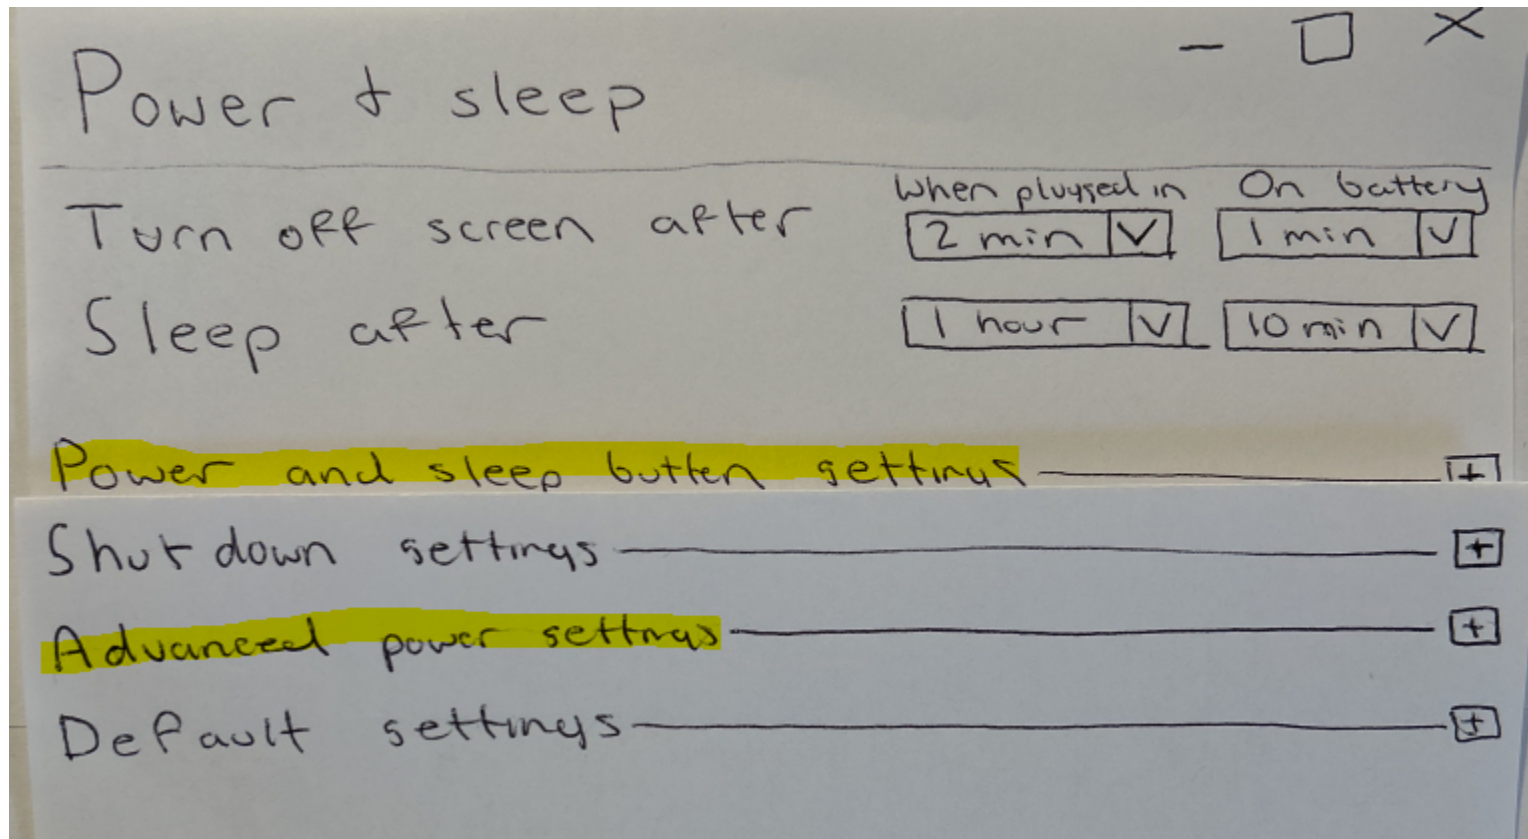 Power & sleep
When plugged in On battery
Turn off screen after 2 min 1 min
Sleep after 1 hour 10 min
Power and sleep button settings
Shut down settings
Advanced power settings
Default settings